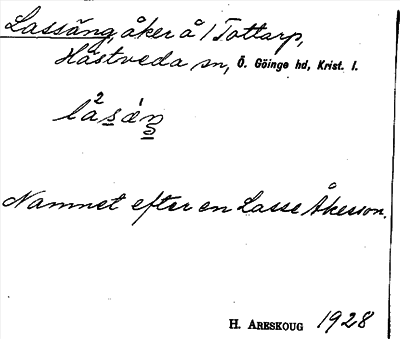 Lassäng, åker å 1 Tottarp,
Hästveda sn, Ö. Göinge hd, Krist. l.
Namnet efter en Lasse Åkesson.
H. ARESKOUG 1928